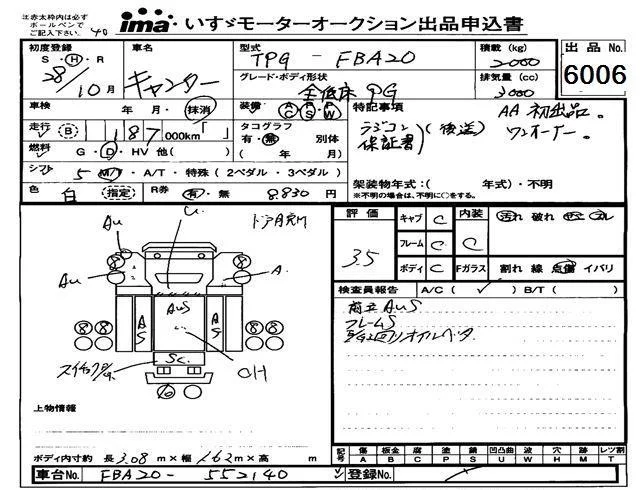 注赤太枠内は必ず
ボールペンで
ご記入下さい。
ima いすゞモーターオークション出品申込書
初度登録
S・H・R
28/10月
車名
キャンター
型式
TPG - FBA20
積載 (kg)
2000
出品No.
6006
グレード・ボディ形状
全低床 PG
排気量 (cc)
3000
車検 年・月・抹消
装備
A C P S P W
特記事項
AA初出品。
ラジコン(後送)
ワンオーナー。
保証書
走行 B 187,000km
タコグラフ
有・無 別体
( 年 月)
燃料 G・D・HV 他( )
シフト 5 M/T・A/T・特殊(2ペダル・3ペダル)
架装物年式:( 年式)・不明
※不明の場合は、不明に○をする。
色 白 指定 R券 有・無 8,830円
評価
3.5
キャブ C
フレーム C
ボディ C
内装 C
汚れ 破れ コゲ スレ
Fガラス 割れ 線 点傷 イバリ
検査員報告 A/C( ✓ ) B/T( )
前立AuS
フレームS
Au
U
Au
A
AuS
A S
A S
SC
CH
8
16
上物情報
ボディ内寸約 長3.08m×幅1.62m×高 m
記号
傷 A
板金 B
腐 C
塗 P
錆 S
凹凸曲 U
波 W
穴 H
跡 M
レツ割 T
車台No. FBA20-552140
登録No.